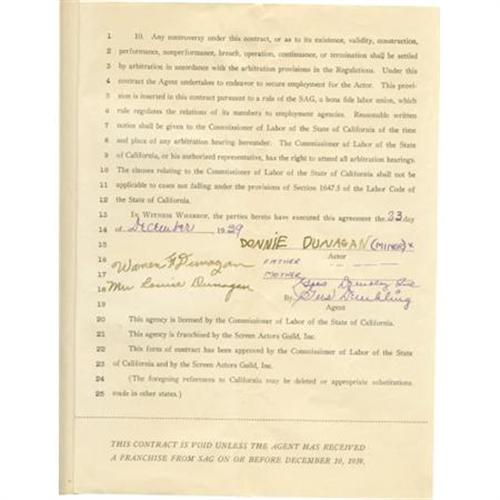 1 10. Any controversy under this contract, or as to its existence, validity, construction,
2 performance, nonperformance, breach, operation, continuance, or termination shall be settled
3 by arbitration in accordance with the arbitration provisions in the Regulations. Under this
4 contract the Agent undertakes to endeavor to secure employment for the Actor. This provi-
5 sion is inserted in this contract pursuant to a rule of the SAG, a bona fide labor union, which
6 rule regulates the relations of its members to employment agencies. Reasonable written
7 notice shall be given to the Commissioner of Labor of the State of California of the time
8 and place of any arbitration hearing hereunder. The Commissioner of Labor of the State
9 of California, or his authorized representative, has the right to attend all arbitration hearings.
10 The clauses relating to the Commissioner of Labor of the State of California shall not be
11 applicable to cases not falling under the provisions of Section 1647.5 of the Labor Code of
12 the State of California.
13 In Witness Whereof, the parties hereto have executed this agreement the 23 day
14 of December, 1939
15 DONNIE DUNAGAN (MINOR) x
Actor
16 Warner F Dunagan FATHER
17 MOTHER Gus
18 Mrs Louise Dunagan By Gus
19 Agent
20 This agency is licensed by the Commissioner of Labor of the State of California.
21 This agency is franchised by the Screen Actors Guild, Inc.
22 This form of contract has been approved by the Commissioner of Labor of the State
23 of California and by the Screen Actors Guild, Inc.
24 (The foregoing references to California may be deleted or appropriate substitutions
25 made in other states.)
THIS CONTRACT IS VOID UNLESS THE AGENT HAS RECEIVED
A FRANCHISE FROM SAG ON OR BEFORE DECEMBER 10, 1939.